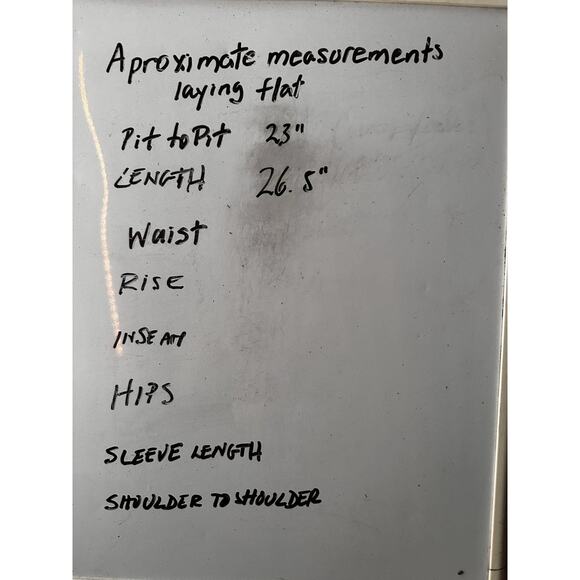 Aproximate measurements
laying flat
Pit to Pit 23"
LENGTH 26.5"
Waist
RISE
INSEAM
HIPS
SLEEVE LENGTH
SHOULDER TO SHOULDER